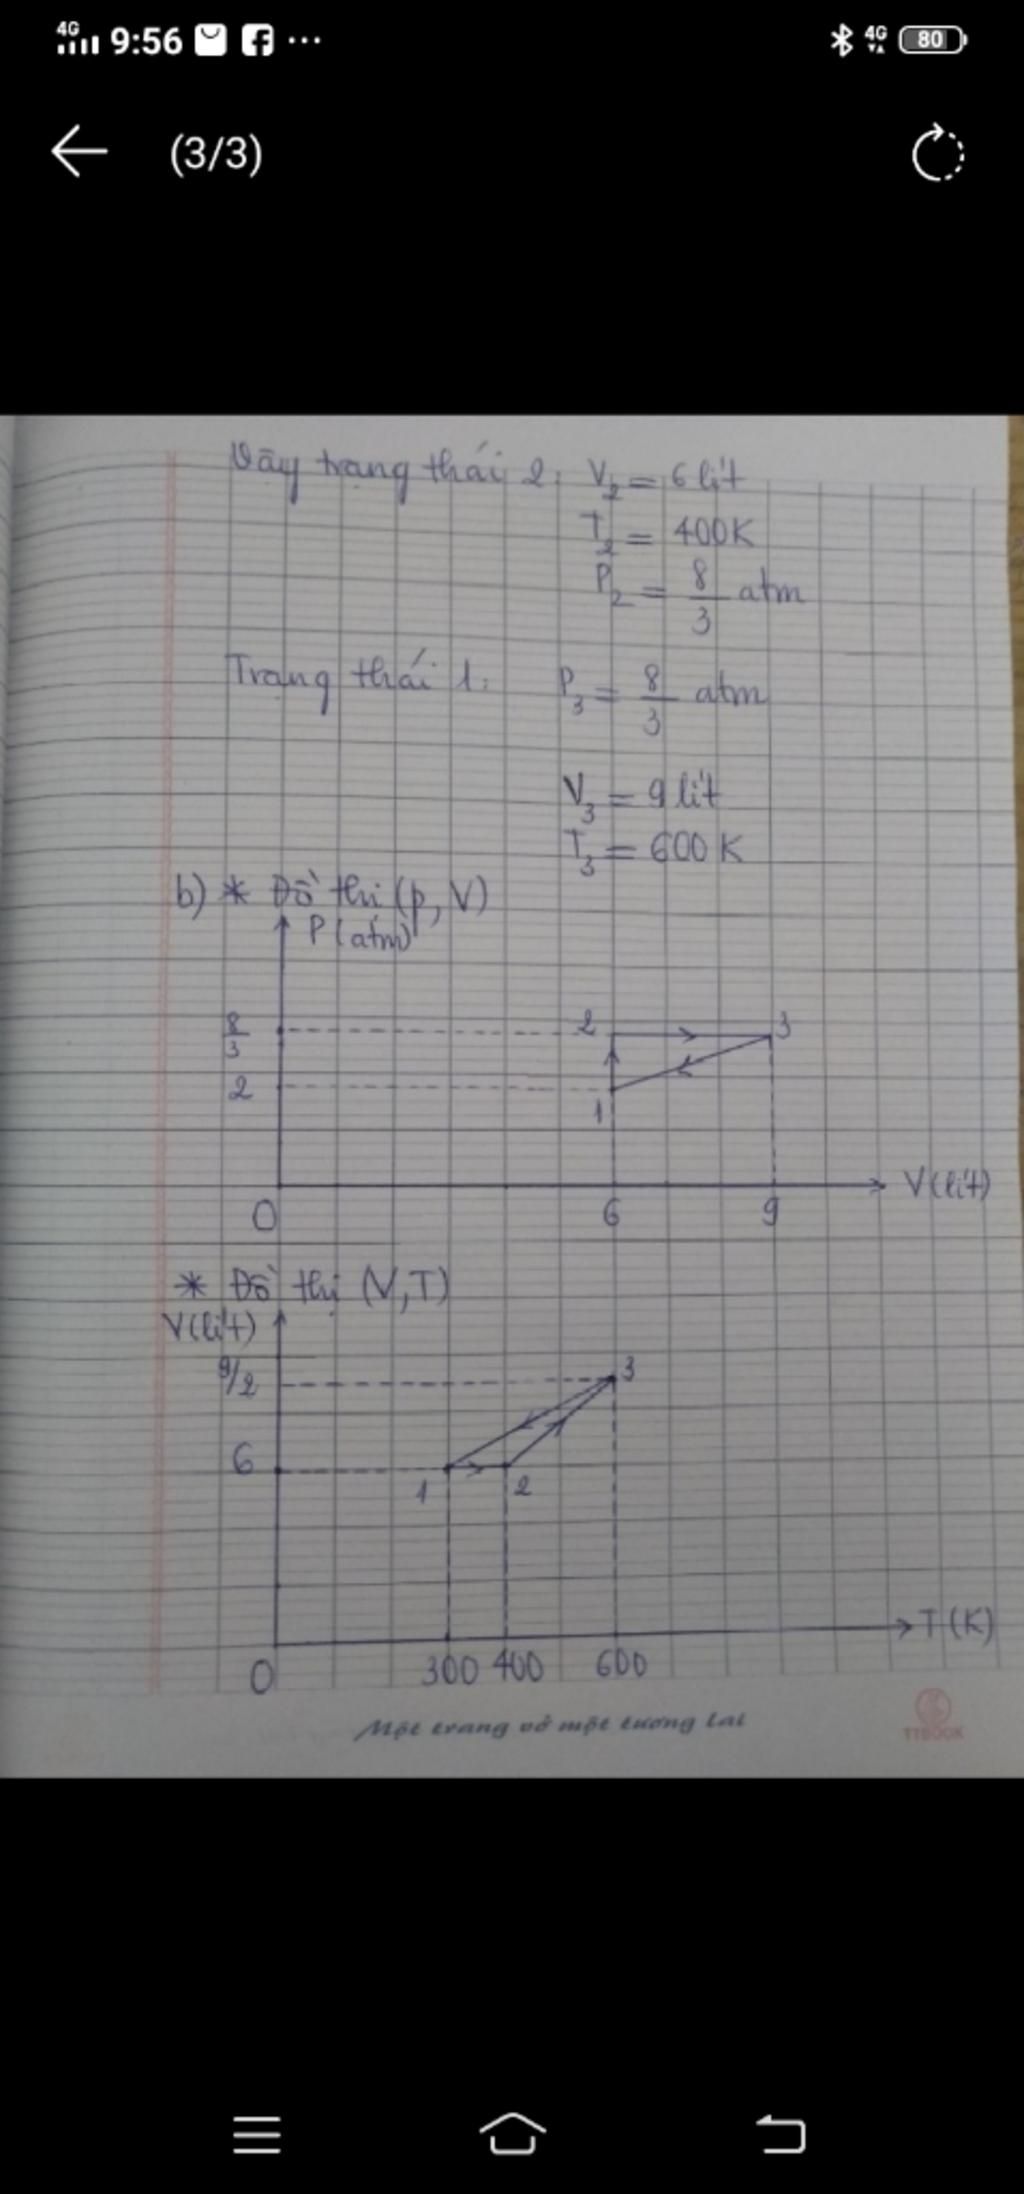 4G 9:56 4G 80
(3/3)
Vậy trạng thái 2: V₂ = 6 lít
T₂ = 400K
P₂ = 8/3 atm
Trạng thái 1: P₃ = 8/3 atm
V₃ = 9 lít
T₃ = 600 K
b) * Đồ thị (p, V)
P (atm)
8/3
2 3
2
1
0 6 9 V (lít)
* Đồ thị (V, T)
V (lít)
9/2
3
6
1 2
0 300 400 600 T (K)
Một trang vở một tương lai
TTBOOK